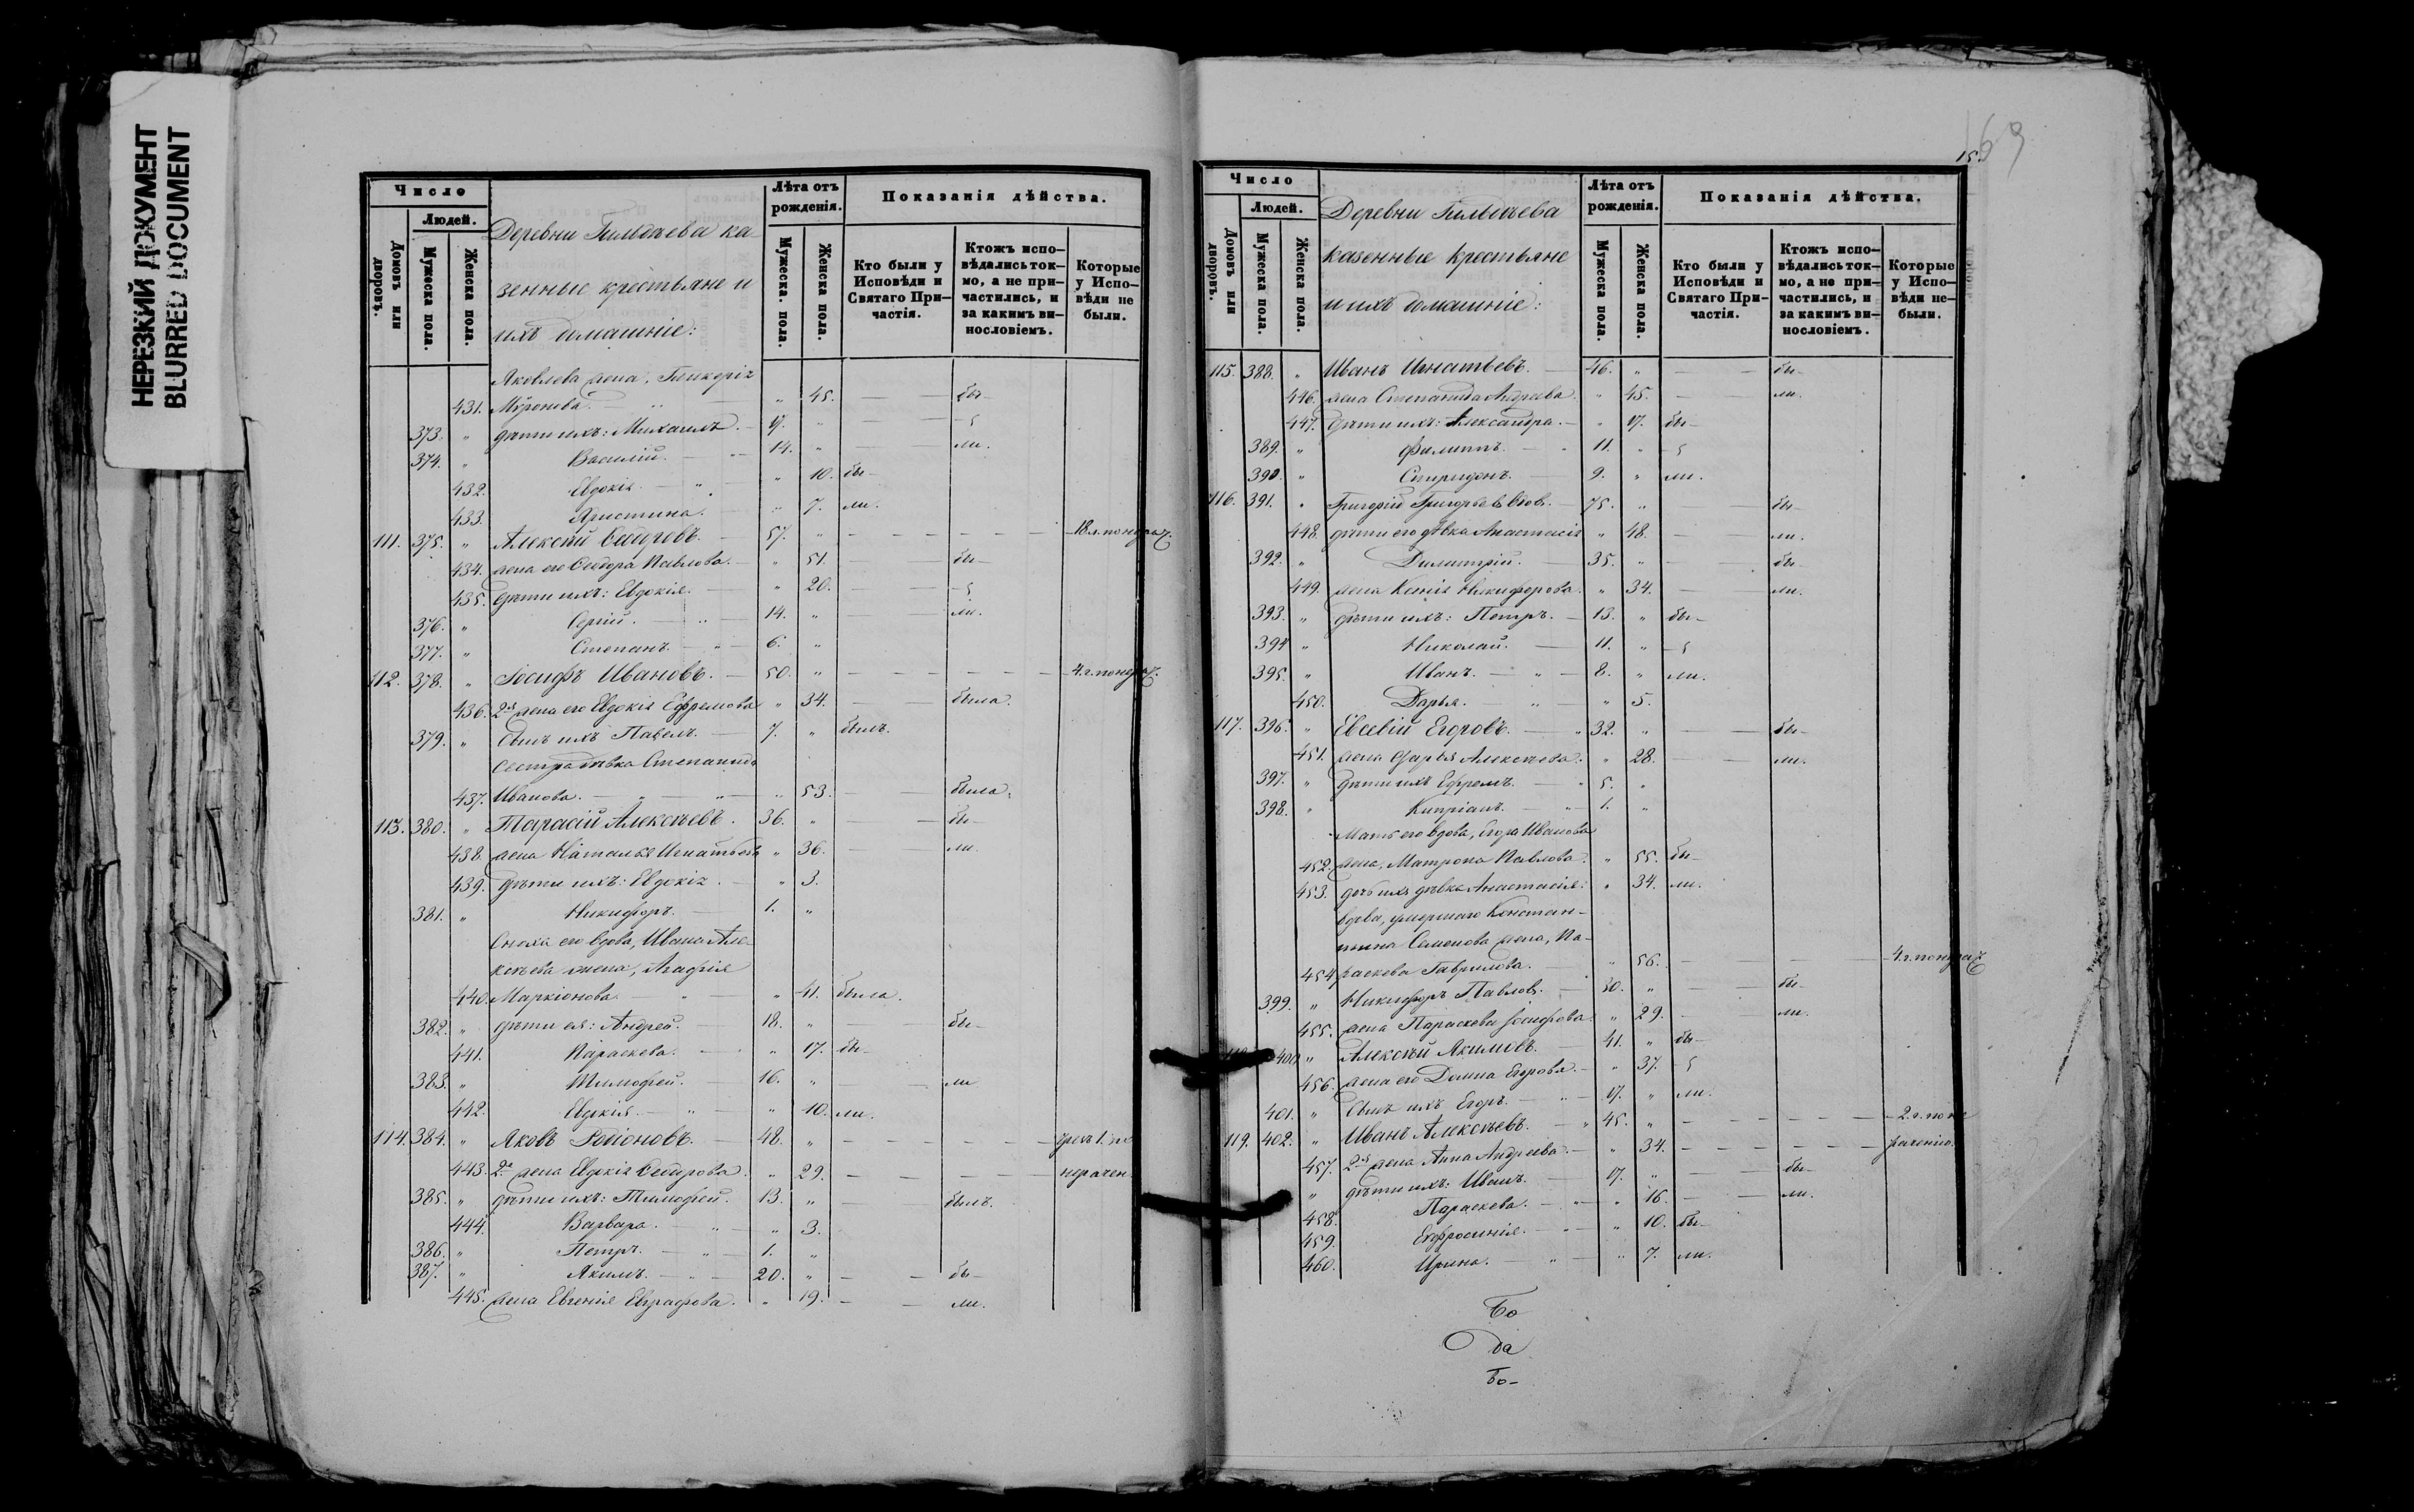 НЕРЕЗКИЙ ДОКУМЕНТ
BLURRED DOCUMENT
Число
Людей.
Домовъ или дворовъ.
Мужеска пола.
Женска пола.
Деревни ка-
зенные крестьяне и
ихъ домашніе:
Лѣта отъ рожденія.
Мужеска. пола.
Женска пола.
Показанія дѣйства.
Кто были у Исповѣди и Святаго При-частія.
Ктожъ испо-вѣдались ток-мо, а не при-частились, и за какимъ ви-нословіемъ.
Которые у Испо-вѣди не были.
Яковлева жена, Гликерія
431. Миронова. " 45. бы-
373. " дѣти ихъ: Михаилъ. 17. "
374. " Василій. 14. " ли.
432. Евдокія. " 10. бы-
433. Христина. " 7. ли.
111. 375. " Алексѣй Ѳедоровъ. 57. " 18 л. по нерач.
434. жена его Ѳеодора Павлова. " 51. бы-
435. дѣти ихъ: Евдокія. " 20.
376. " Сергій. 14. " ли.
377. " Степанъ. 6. "
112. 378. " Іосифъ Ивановъ. 50. " 4. г. по нерач.
436. 2я жена его Евдокія Ефремова " 34. была.
379. " Сынъ ихъ Павелъ. 7. " былъ.
Сестра дѣвка Степанида
437. Иванова. " 53. была.
113. 380. " Тарасій Алексѣевъ. 36. " бы-
438. жена Наталья Игнатьева " 36. ли.
439. дѣти ихъ: Евдокія. " 3.
381. " Никифоръ. 1. "
Сноха его вдова, Ивана Але-
ксѣева жена, Агафія
440. Маркіонова. " 41. была.
382. " дѣти ея: Андрей. 18. " бы-
441. Параскева. " 17. бы-
383. " Тимофей. 16. " ли
442. Евдокія. " 10. ли.
114. 384. " Яковъ Родіоновъ. 48. "
443. 2я жена Евдокія Ѳедорова. " 29. нерачен
385. " дѣти ихъ: Тимофей. 13. " былъ.
444. Варвара. " 3.
386. " Петръ. 1. "
387. " Акимъ. 20. " бы-
445. жена Евгенія Евграфова. " 19. ли.
15.
69
Число
Людей.
Домовъ или дворовъ.
Мужеска пола.
Женска пола.
Деревни
казенные крестьяне
и ихъ домашніе:
Лѣта отъ рожденія.
Мужеска пола.
Женска пола.
Показанія дѣйства.
Кто были у Исповѣди и Святаго При-частія.
Ктожъ испо-вѣдались ток-мо, а не при-частились, и за какимъ ви-нословіемъ.
Которые у Испо-вѣди не-были.
115. 388. " Иванъ Игнатьевъ. 46. " бы-
446. жена Степанида Андреева. " 45. ли.
447. дѣти ихъ: Александра. " 17. бы-
389. " Филиппъ. 11. "
390. " Спиридонъ. 9. " ли.
116. 391. " Григорій Григорьевъ 75. " бы-
448. дѣти его дѣвка Анастасія " 48. ли.
392. " Димитрій. 35. " бы-
449. жена Ксенія Никифорова. " 34. ли.
393. " дѣти ихъ: Петръ. 13. " бы-
394 " Николай. 11. "
395. " Иванъ. 8. " ли.
450. Дарья. " 5.
117. 396. " Евсевій Егоровъ. 32. " бы-
451. жена Дарья Алексѣева. " 28. ли.
397. " дѣти ихъ Ефремъ. 5. "
398. " Кипріанъ. 1. "
Мать его вдова, Егора Иванова
452. жена, Матрона Павлова. " 55. бы-
453. дочь ихъ дѣвка Анастасія. " 34. ли.
вдова, умершаго Констан-
тина Семенова жена, Па-
454. раскева Гаврилова. " 56. 4. г. по нерач
399. " Никифоръ Павловъ. 30. " бы-
455. жена Параскева Іосифова. " 29. ли.
400. " Алексѣй Акимовъ. 41. " бы-
456. жена его Домна Егорова. " 37.
401. " Сынъ ихъ Егоръ. 17. " ли.
119. 402. " Иванъ Алексѣевъ. 45. " 2. г. по не
457. 2я жена Анна Андреева. " 34. раченію.
" дѣти ихъ: Иванъ. 17. " бы-
458. Параскева. " 16. ли.
459. Евфросинія. " 10. бы-
460. Ирина. " 7. ли.
Бо
да
Бо-